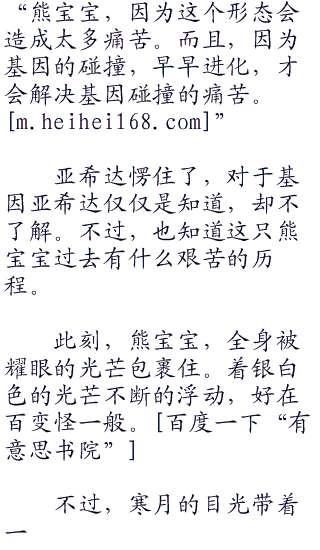 “熊宝宝，因为这个形态会
造成太多痛苦。而且，因为
基因的碰撞，早早进化，才
会解决基因碰撞的痛苦。
[m.heihei168.com]”
亚希达愣住了，对于基
因亚希达仅仅是知道，却不
了解。不过，也知道这只熊
宝宝过去有什么艰苦的历
程。
此刻，熊宝宝，全身被
耀眼的光芒包裹住。着银白
色的光芒不断的浮动，好在
百变怪一般。[百度一下“有
意思书院”]
不过，寒月的目光带着
一